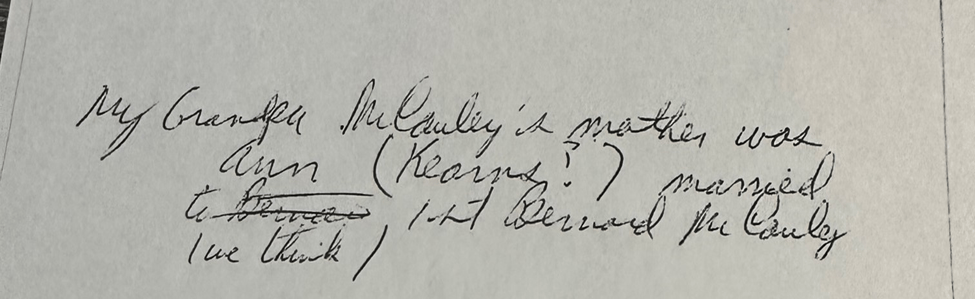 My Grandpa McCauley's mother was
Ann (Kearns?) married
to Bernar 1st Bernard McCauley
(we think)